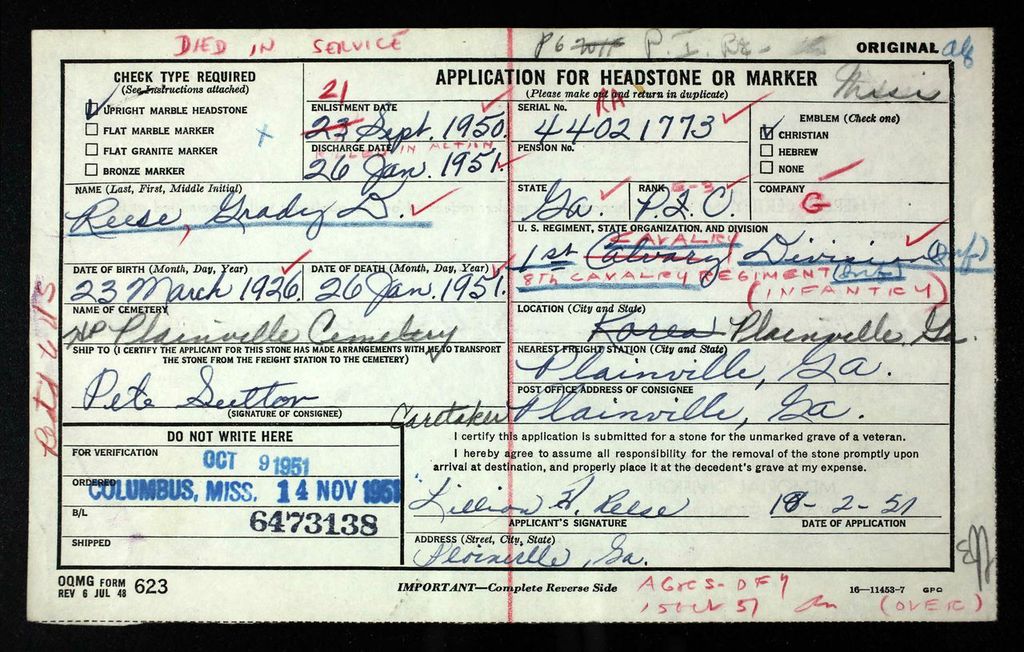 DIED IN SERVICE
P. I. Re-
ORIGINAL
CHECK TYPE REQUIRED
(See Instructions attached)
UPRIGHT MARBLE HEADSTONE
FLAT MARBLE MARKER
FLAT GRANITE MARKER
BRONZE MARKER
APPLICATION FOR HEADSTONE OR MARKER
(Please make out and return in duplicate)
21
ENLISTMENT DATE
23 Sept. 1950.
KILLED IN ACTION
DISCHARGE DATE
26 Jan. 1951.
RA
SERIAL No.
44021773
PENSION No.
EMBLEM (Check one)
CHRISTIAN
HEBREW
NONE
NAME (Last, First, Middle Initial)
Reese, Grady D.
STATE
Ga.
RANK E-3
P.F.C.
COMPANY
G
U. S. REGIMENT, STATE ORGANIZATION, AND DIVISION
CAVALRY
1st Calvary Division (Inf)
8TH CAVALRY REGIMENT (Inf)
(INFANTRY)
DATE OF BIRTH (Month, Day, Year)
23 March 1926.
DATE OF DEATH (Month, Day, Year)
26 Jan. 1951.
NAME OF CEMETERY
Plainville Cemetery
LOCATION (City and State)
Korea Plainville, Ga.
SHIP TO (I CERTIFY THE APPLICANT FOR THIS STONE HAS MADE ARRANGEMENTS WITH ME TO TRANSPORT
THE STONE FROM THE FREIGHT STATION TO THE CEMETERY)
Pete Sutton
(SIGNATURE OF CONSIGNEE)
Caretaker
NEAREST FREIGHT STATION (City and State)
Plainville, Ga.
POST OFFICE ADDRESS OF CONSIGNEE
Plainville, Ga.
DO NOT WRITE HERE
FOR VERIFICATION
OCT 9 1951
ORDERED
COLUMBUS, MISS. 14 NOV 1951
B/L
6473138
SHIPPED
I certify this application is submitted for a stone for the unmarked grave of a veteran.
I hereby agree to assume all responsibility for the removal of the stone promptly upon
arrival at destination, and properly place it at the decedent's grave at my expense.
Lillian H. Reese
APPLICANT'S SIGNATURE
DATE OF APPLICATION
ADDRESS (Street, City, State)
Plainville, Ga.
OQMG FORM 623
REV 6 JUL 48
IMPORTANT—Complete Reverse Side
16—11453-7 GPO
(OVER)